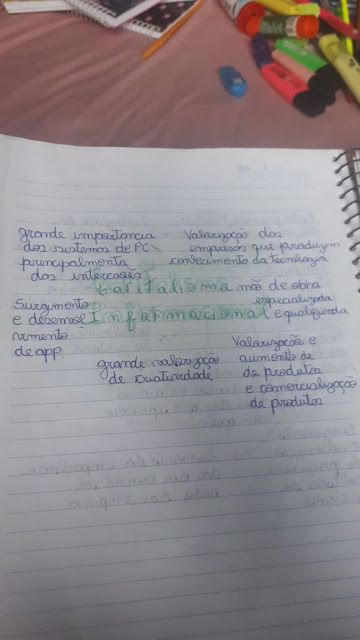 grande importancia
dos sistemas de PC
principalmenta
dos
Valorização das
empresas que produzem
conhecimento da tecnologia
Capitalismo
Informacional
mão de obra
especializada
e qualificada
Surgimento
e desemvol
vimento
de app
grande valorização
de criatividade
Valorizações e
aumento de
de produtos
e comercialização
de produtos